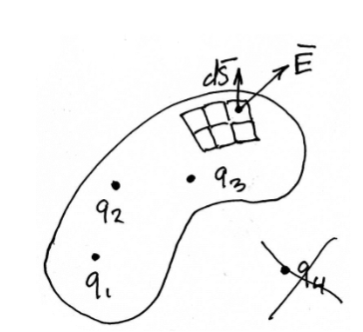 dS̅ E̅
q₃
q₂
q₁
q₄